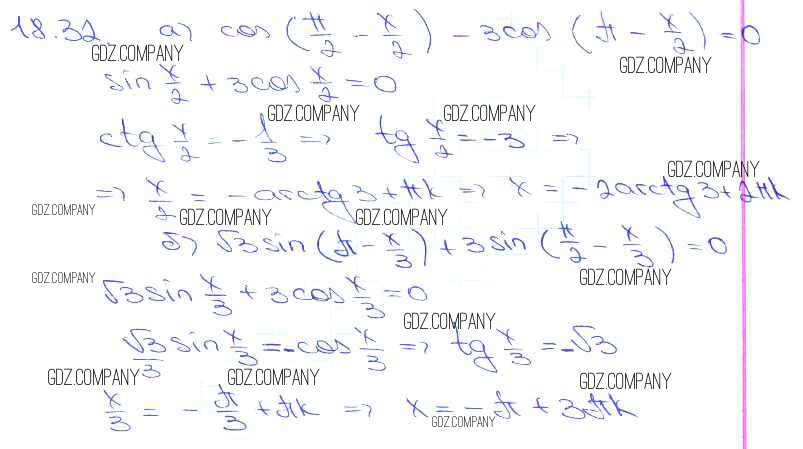 18.32. а) cos(π/2 - x/2) - 3cos(π - x/2) = 0
GDZ.COMPANY GDZ.COMPANY
sin x/2 + 3cos x/2 = 0
GDZ.COMPANY GDZ.COMPANY
ctg x/2 = -1/3 => tg x/2 = -3 =>
GDZ.COMPANY
=> x/2 = -arctg3 + πk => x = -2arctg3 + 2πk
GDZ.COMPANY GDZ.COMPANY GDZ.COMPANY
б) √3sin(π - x/3) + 3sin(π/2 - x/3) = 0
GDZ.COMPANY GDZ.COMPANY
√3sin x/3 + 3cos x/3 = 0
GDZ.COMPANY
√3/3 sin x/3 = -cos x/3 => tg x/3 = -√3
GDZ.COMPANY GDZ.COMPANY GDZ.COMPANY
x/3 = -π/3 + πk => x = -π + 3πk
GDZ.COMPANY